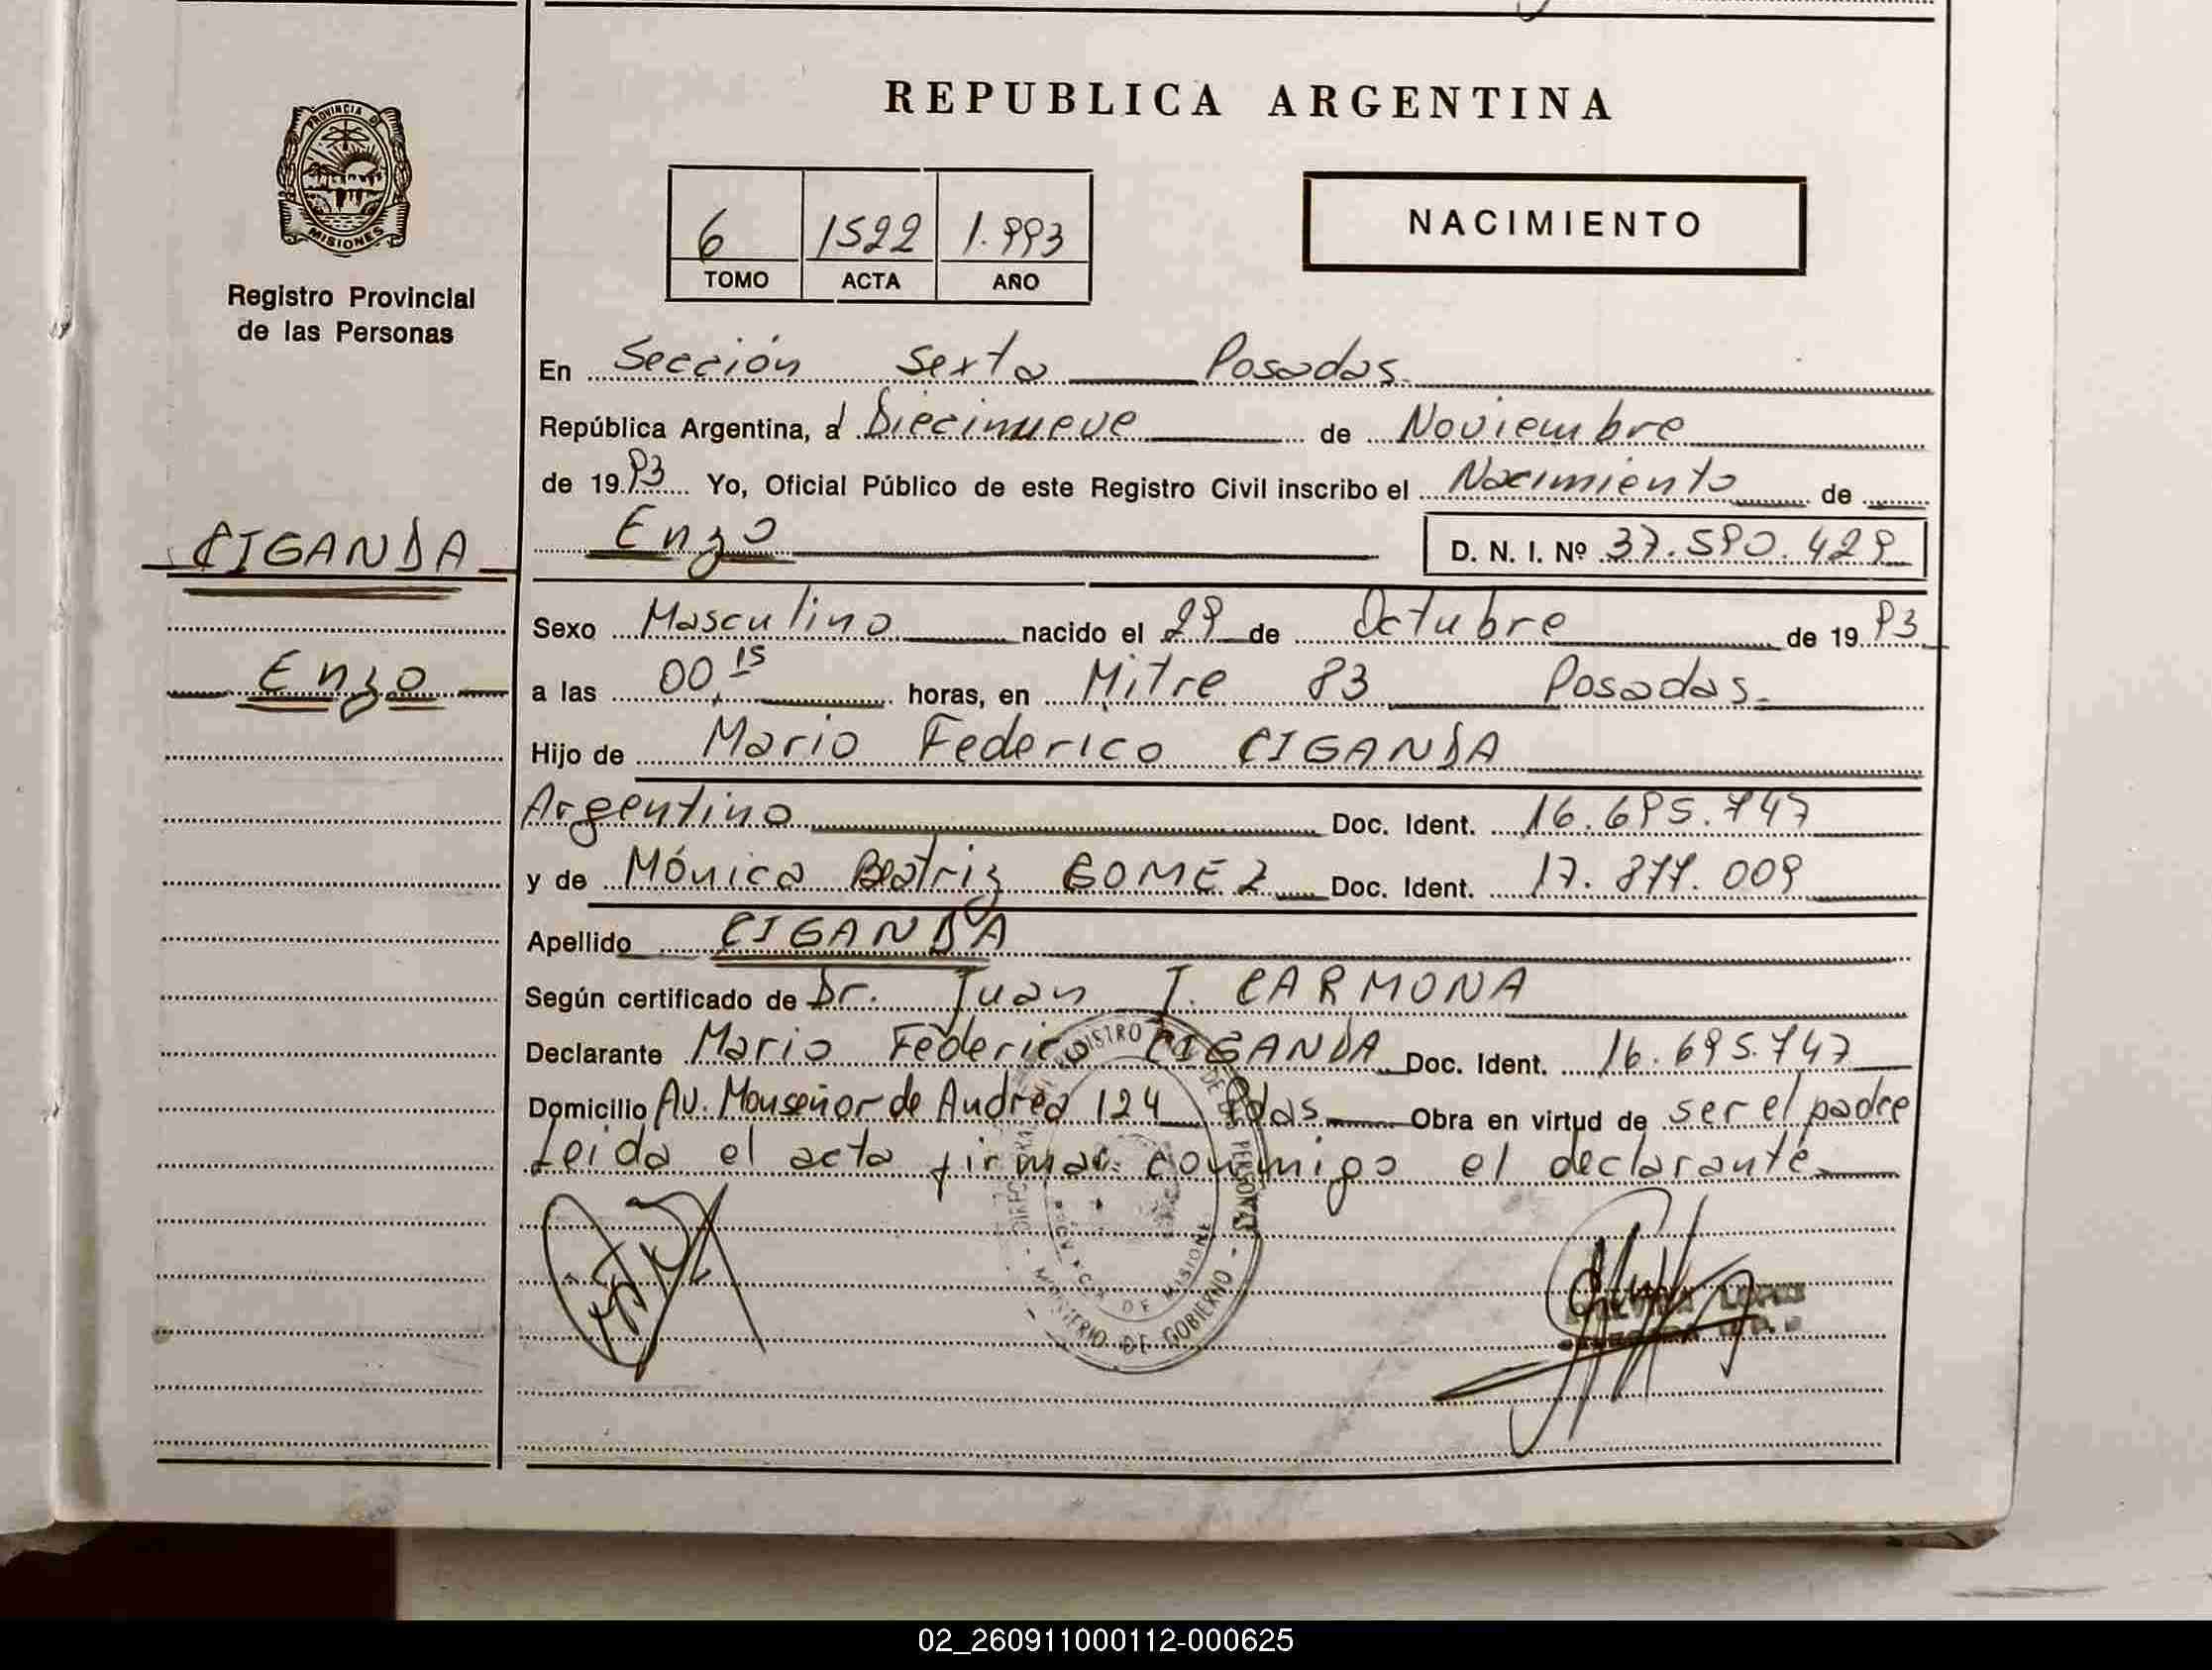 REPUBLICA ARGENTINA
PROVINCIA DE
MISIONES
Registro Provincial
de las Personas
6 1522 1.993
TOMO ACTA AÑO
NACIMIENTO
En Sección Sexta Posadas.
República Argentina, a Diecinueve de Noviembre
de 1993 Yo, Oficial Público de este Registro Civil inscribo el Nacimiento de
CIGANDA
Enzo D. N. I. Nº 37.590.429
Sexo Masculino nacido el 29 de Octubre de 1993
Enzo
a las 00,15 horas, en Mitre 83 Posadas.
Hijo de Mario Federico CIGANDA
Argentino Doc. Ident. 16.695.747
y de Mónica Beatriz GOMEZ Doc. Ident. 17.877.009
Apellido CIGANDA
Según certificado de Dr. Juan J. CARMONA
Declarante Mario Federico CIGANDA Doc. Ident. 16.695.747
Domicilio Av. Monseñor de Andrea 124 Pdas Obra en virtud de ser el padre
Leida el acta firma conmigo el declarante.
REGISTRO DE PERSONAS
PROVINCIA DE MISIONES
- MINISTERIO DE GOBIERNO -
02_260911000112-000625